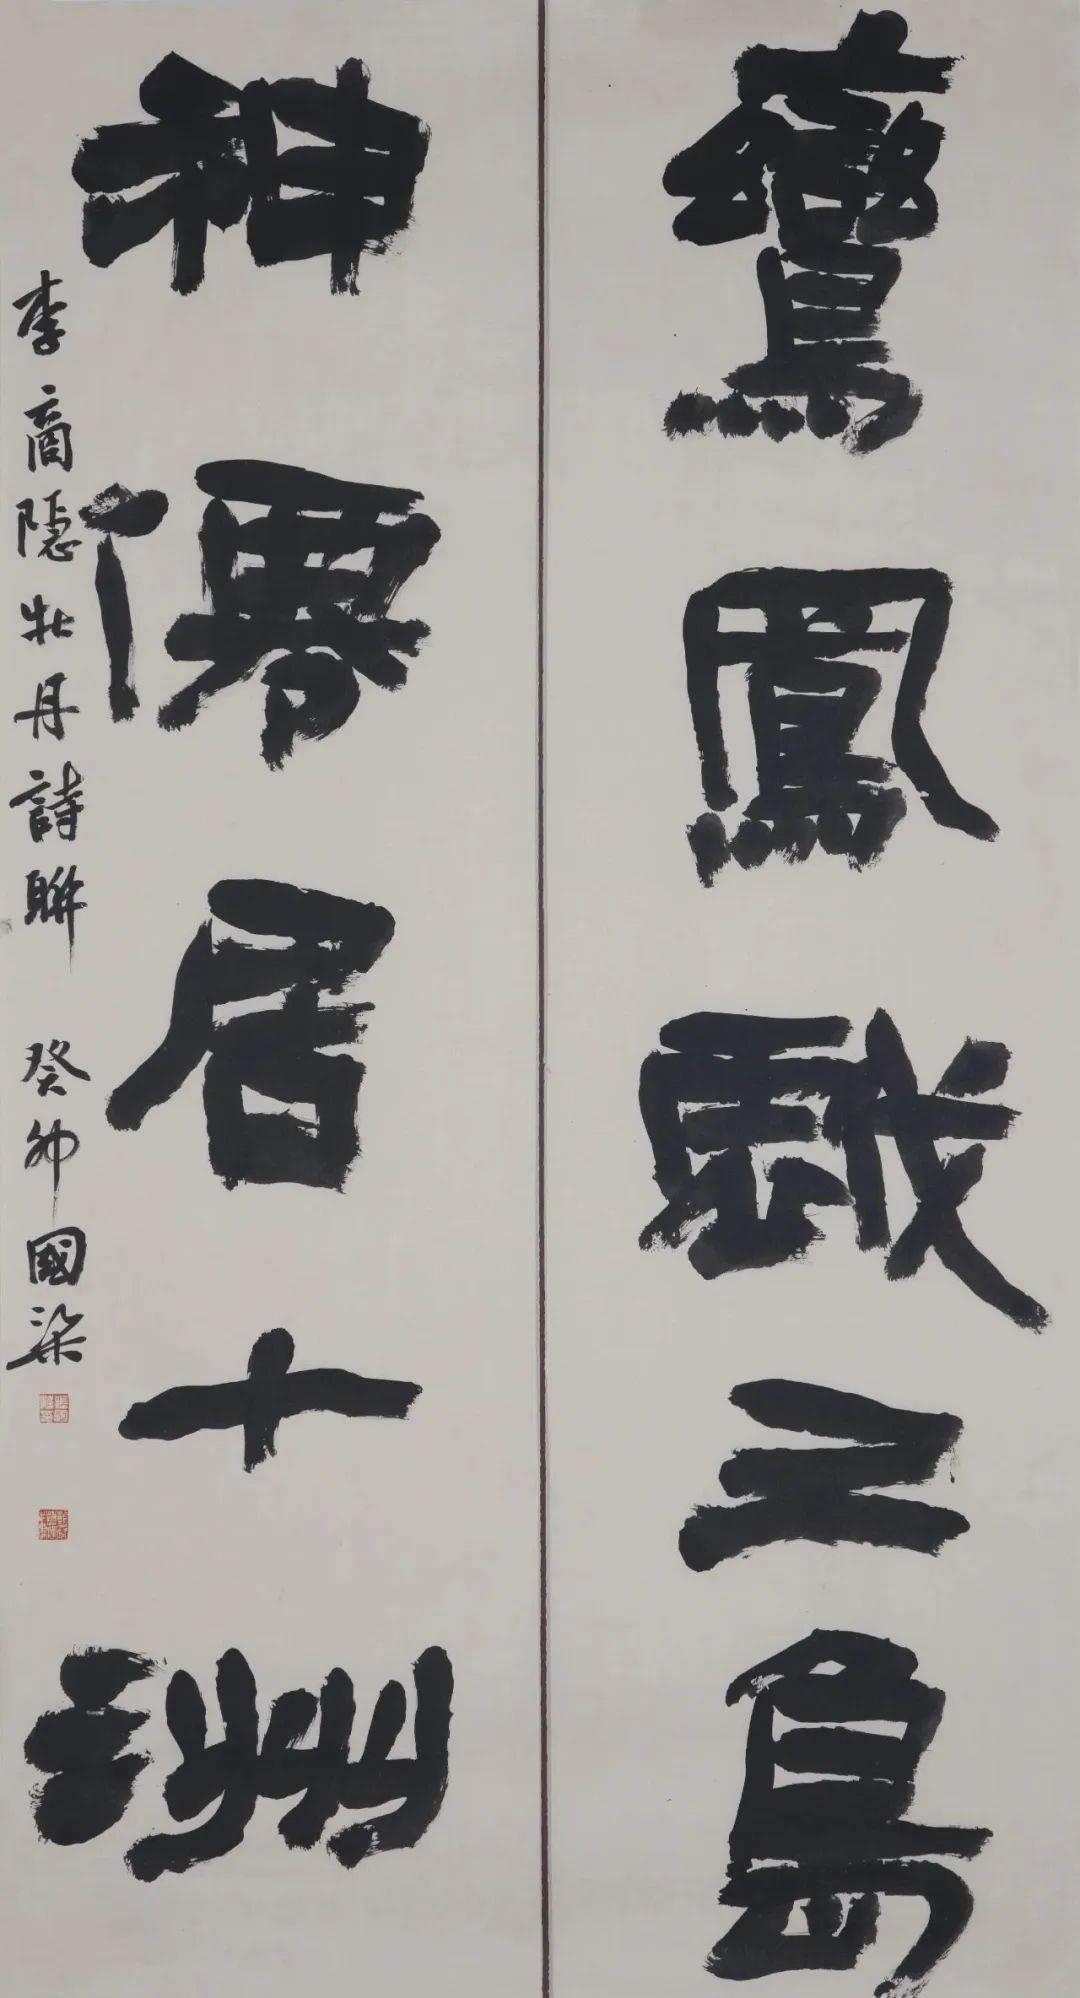 鸞鳳戲三島
神僊居十洲
李商隱牡丹詩聯 癸卯國梁